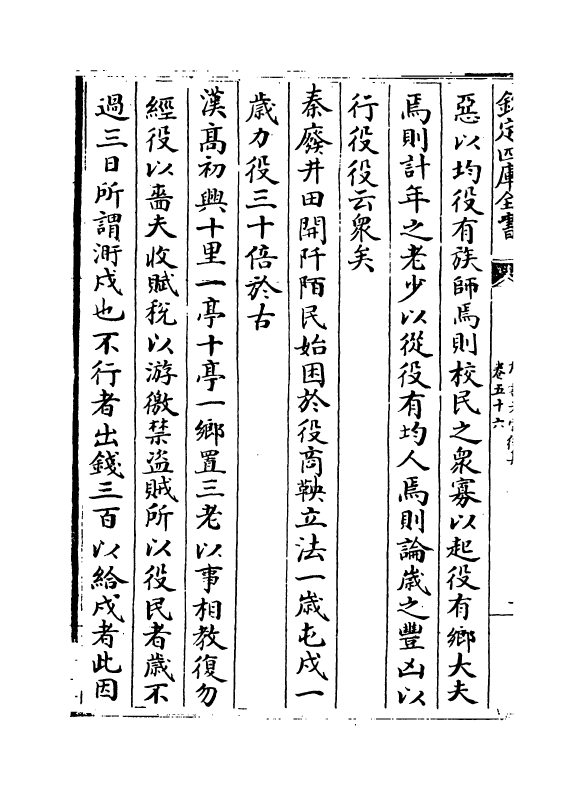 欽定四庫全書
卷五十六
惡以均役有族師焉則校民之衆寡以起役有鄉大夫
焉則計年之老少以從役有均人焉則論歳之豐凶以
行役役云衆矣
秦廢井田開阡陌民始困於役商鞅立法一歳屯戍一
歳力役三十倍於古
漢髙初興十里一亭十亭一鄉置三老以事相教復勿
經役以嗇夫收賦稅以游徼禁盗賊所以役民者歳不
過三日所謂漷戍也不行者出錢三百以給戍者此因